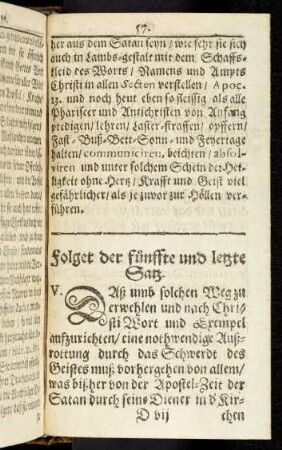 57.
her aus dem Satan seyn / wie sehr sie sich
auch in Lambs-gestalt mit dem Schaffs-
kleid des Worts / Namens und Ampts
Christi in allen Secten verstellen / Apoc.
13. und noch heut eben so fleissig als alle
Phariseer und Antichristen von Anfang
predigen / lehren / Laster-straffen / opffern /
Fast- Buß-Bett-Sonn- und Feyertage
halten / communiciren, beichten / absol-
viren und unter solchem Schein der Hei-
ligkeit ohne Hertz / Krafft und Geist viel
gefährlicher / als je zuvor zur Höllen ver-
führen.
Folget der fünffte und letzte
Satz.
V. Daß umb solchen Weg zu
erwehlen und nach Chri-
sti Wort und Exempel
aufzurichten / eine nothwendige Auß-
rottung durch das Schwerdt des
Geistes muß vorhergehen von allem /
was bißher von der Apostel-Zeit der
Satan durch seins Diener in d' Kir-
D vij chen